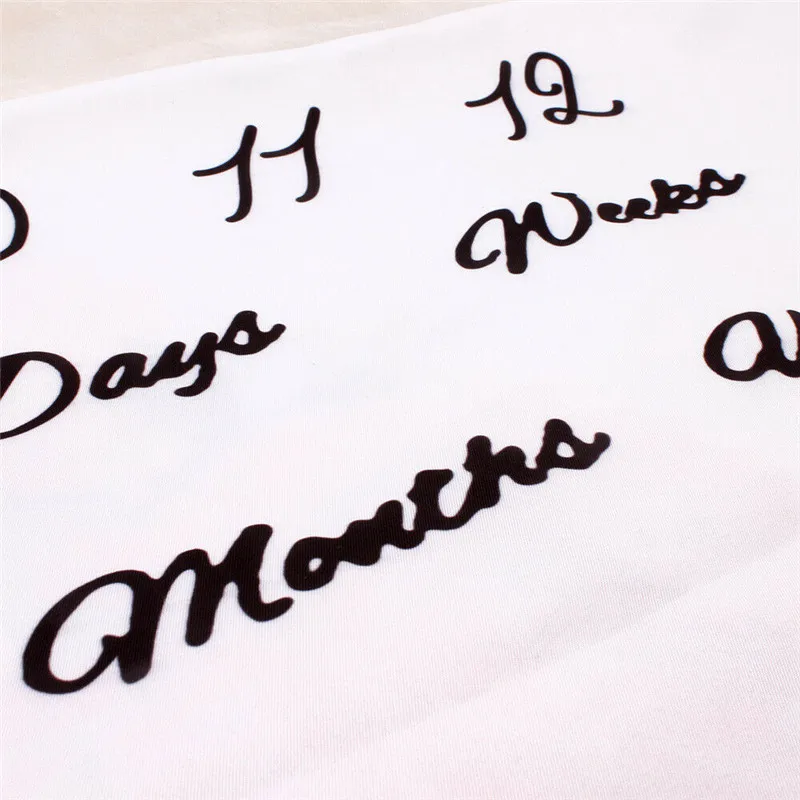 11 12
Days Weeks
Months